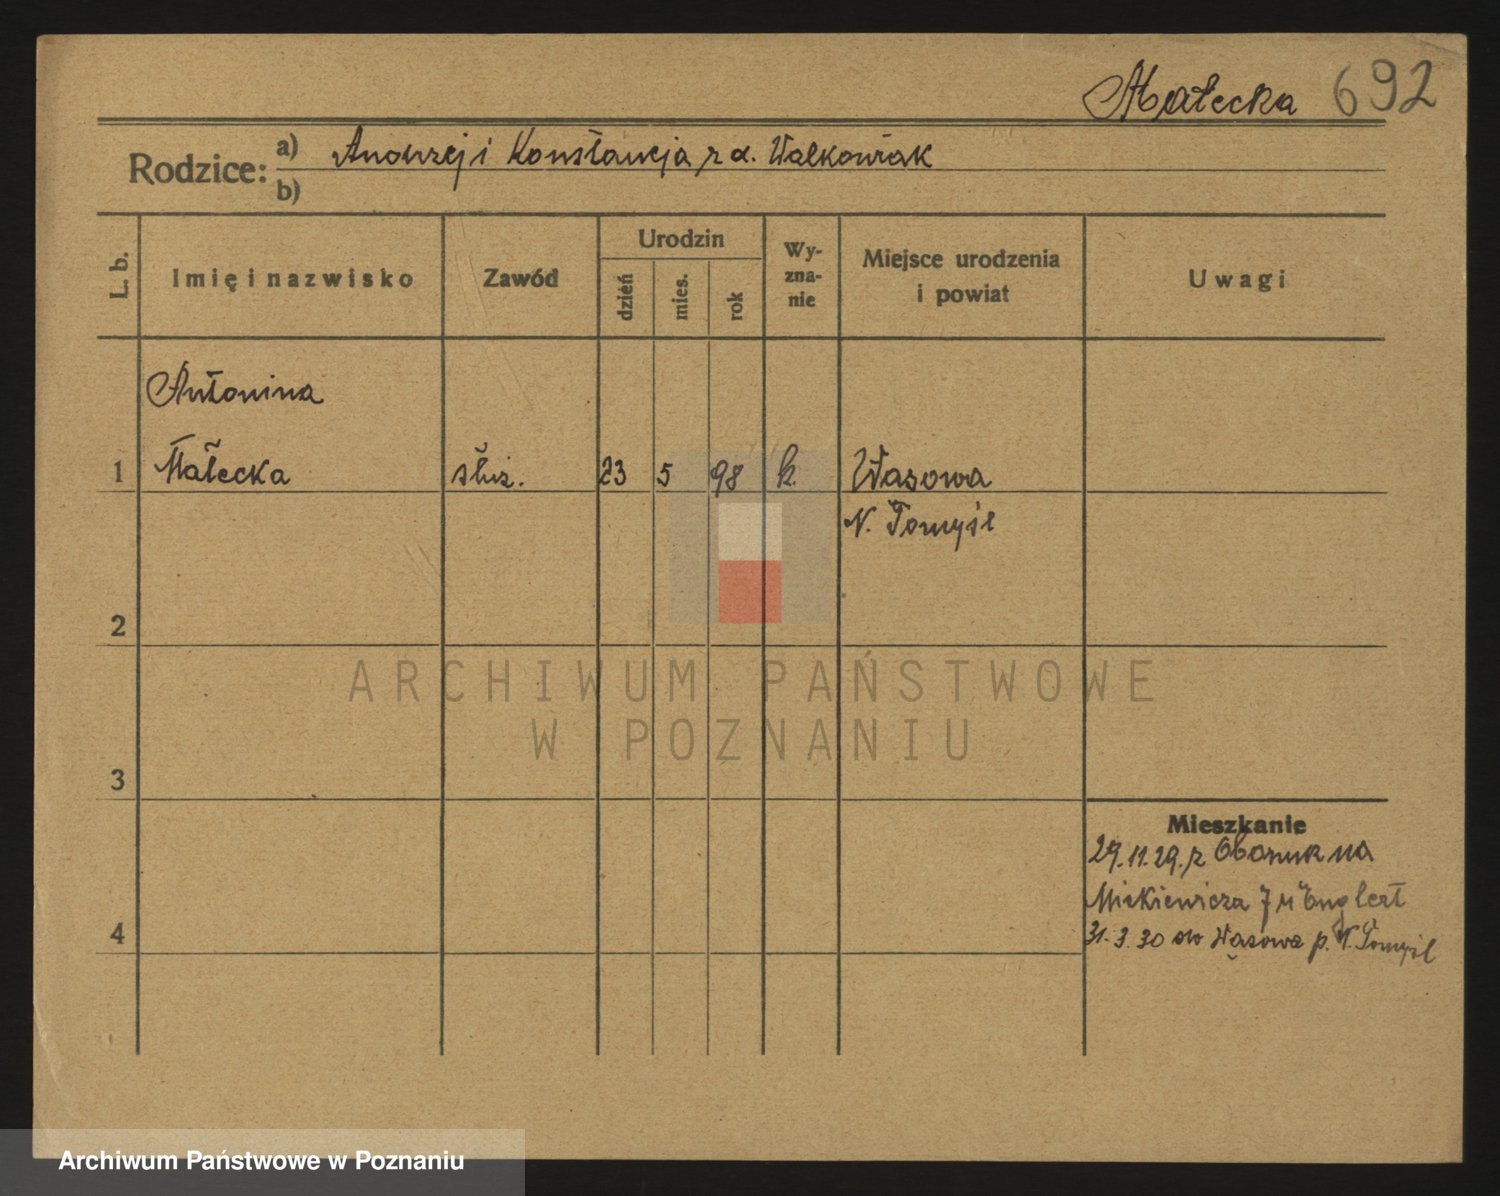 Małecka 692
Rodzice: a) Andrzej i Konstancja z d. Walkowiak
b)
L. b.
Imię i nazwisko
Zawód
Urodzin
dzień
mies.
rok
Wy-
zna-
nie
Miejsce urodzenia
i powiat
Uwagi
Antonina
1 Małecka służ. 23 5 98 k. Wąsowa
N. Tomyśl
2
ARCHIWUM PAŃSTWOWE
W POZNANIU
3
Mieszkanie
29.11.29. z Obornik na
Mickiewicza 7 u Englert
4
31.3.30 do Wąsowa p. N. Tomyśl
Archiwum Państwowe w Poznaniu